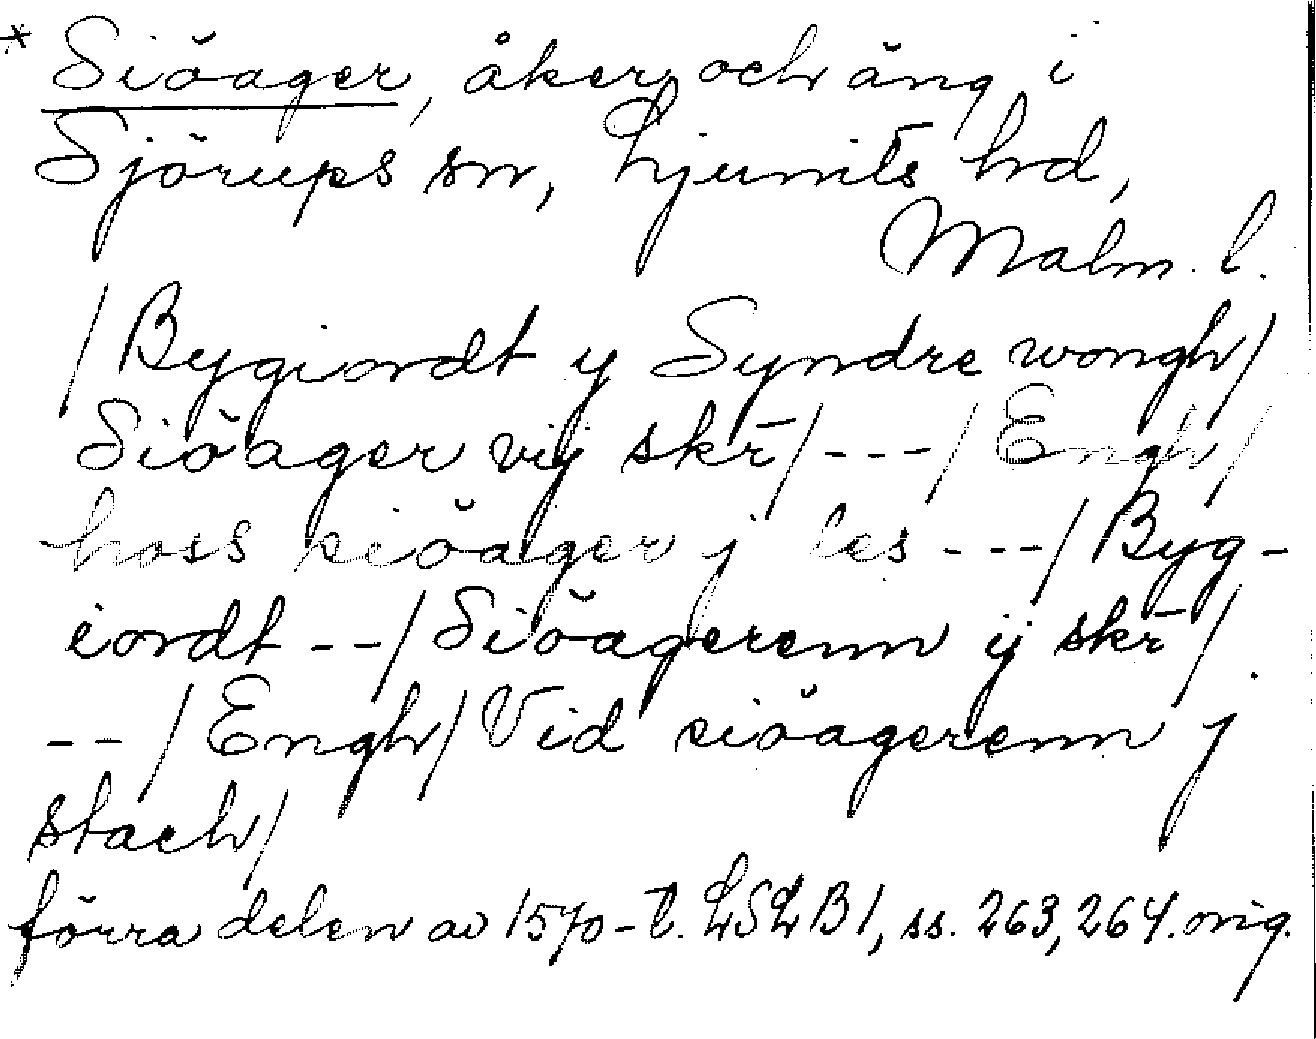 * Siöager, åker och äng i
Sjörups sn, Ljunits hd,
Malm. l.
/Bygiordt y Syndre wongh/
Siöager vij skr̄/---/Engh/
hoss siöager j les ---/Byg-
iordt --/Siöagerenn ij skr̄/
--/Engh/Vid siöagerenn j
stach/
förra delen av 1570-t. LSLB1, ss. 263, 264. orig.